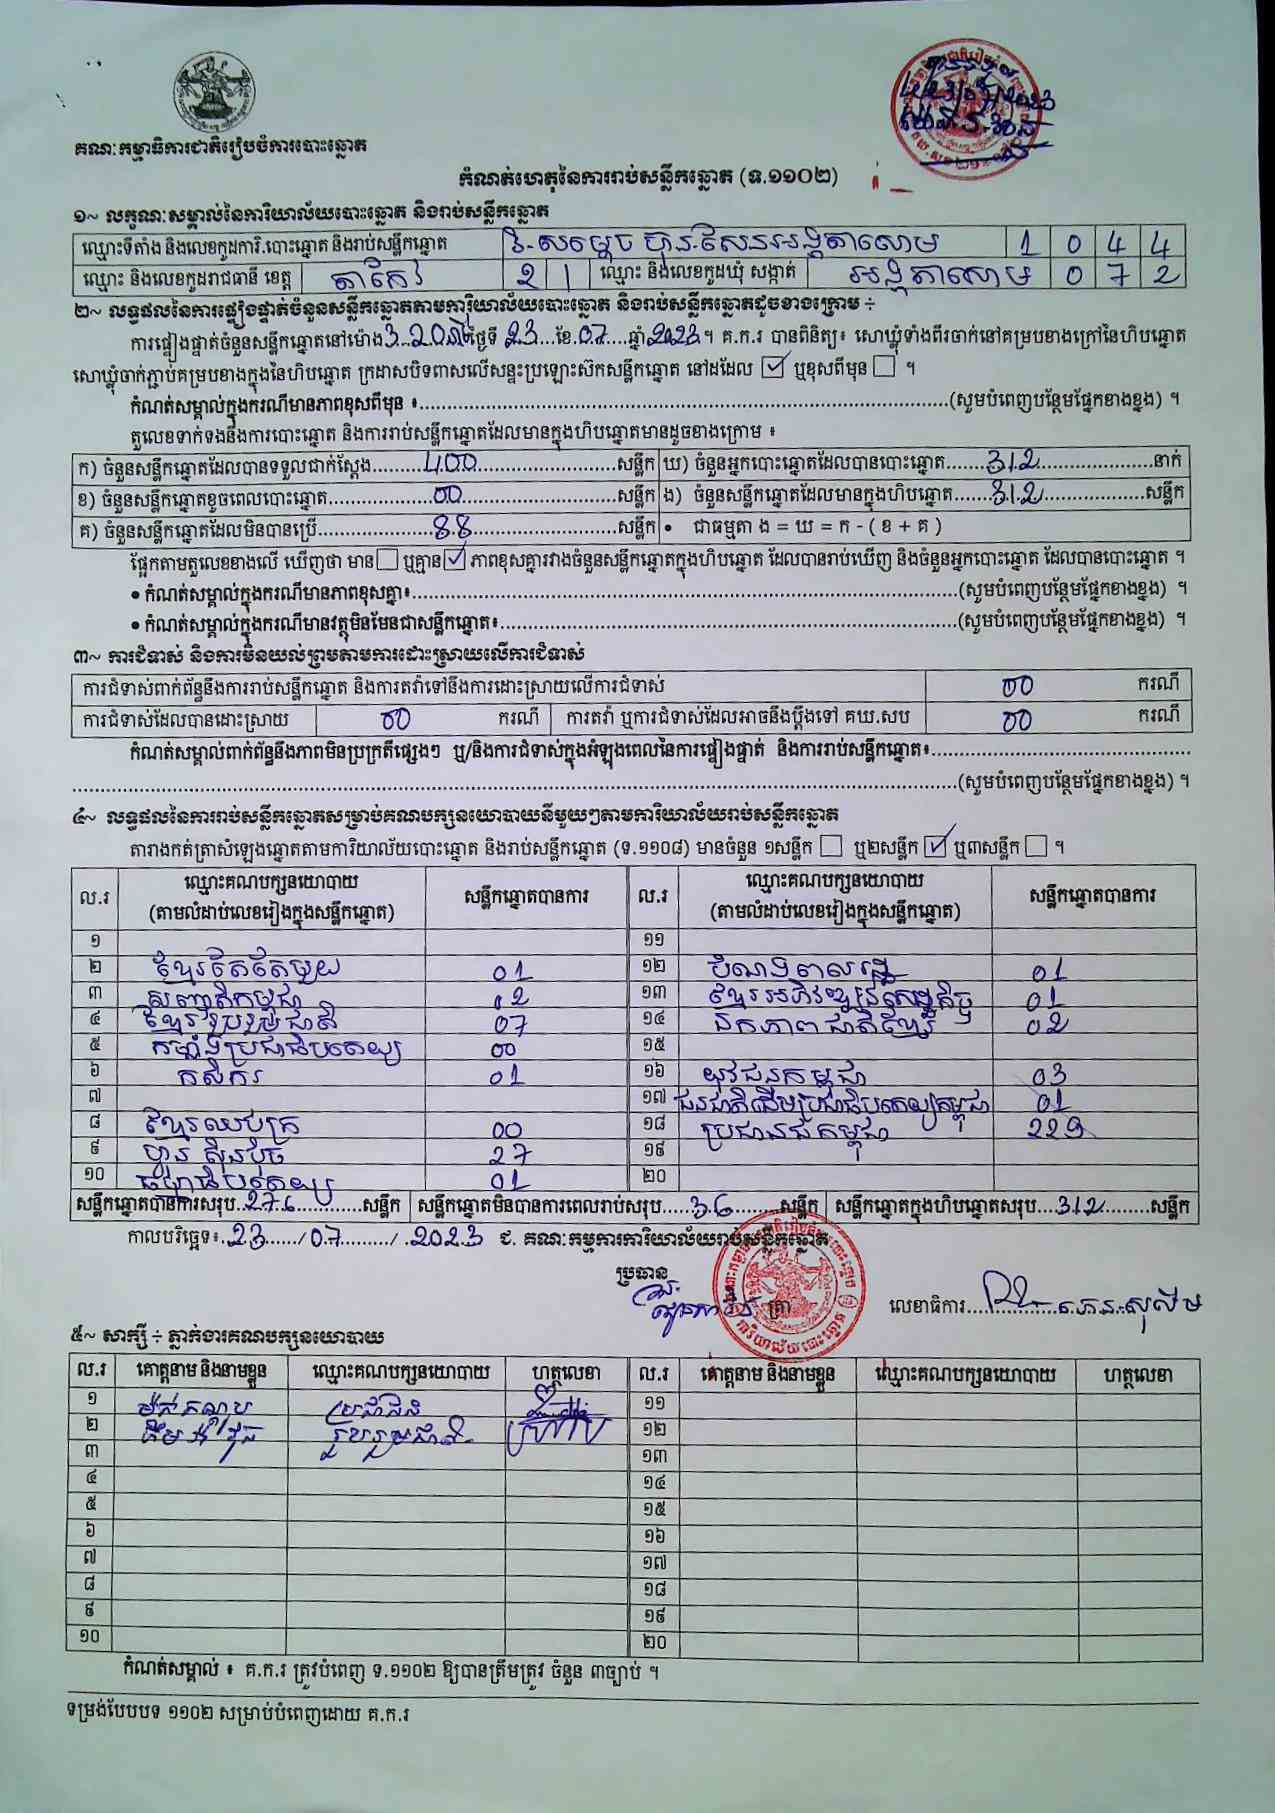 គណៈកម្មាធិការជាតិរៀបចំការបោះឆ្នោត
កំណត់ហេតុនៃការរាប់សន្លឹកឆ្នោត (ទ.១១០២)
១~ លក្ខណៈសម្គាល់នៃការិយាល័យបោះឆ្នោត និងរាប់សន្លឹកឆ្នោត
ឈ្មោះទីតាំង និងលេខកូដការិ.បោះឆ្នោត និងរាប់សន្លឹកឆ្នោត វិ-សម្តេច ហ៊ុន-សែនអង្គតាសោម 1 0 4 4
ឈ្មោះ និងលេខកូដរាជធានី ខេត្ត តាកែវ 2 1 ឈ្មោះ និងលេខកូដឃុំ សង្កាត់ អង្គតាសោម 0 7 2
២~ លទ្ធផលនៃការផ្ទៀងផ្ទាត់ចំនួនសន្លឹកឆ្នោតតាមការិយាល័យបោះឆ្នោត និងរាប់សន្លឹកឆ្នោតដូចខាងក្រោម ÷
ការផ្ទៀងផ្ទាត់ចំនួនសន្លឹកឆ្នោតនៅម៉ោង 3 20 ថ្ងៃទី 23 ខែ 07 ឆ្នាំ 2023 ។ គ.ក.រ បានពិនិត្យ៖ សោឃ្លុំទាំងពីរចាក់នៅគម្របខាងក្រៅនៃហិបឆ្នោត
សោឃ្លុំចាក់ភ្ជាប់គម្របខាងក្នុងនៃហិបឆ្នោត ក្រដាសបិទពាសលើសន្ទះប្រឡោះស៊កសន្លឹកឆ្នោត នៅដដែល ☑ ឬខុសពីមុន ☐ ។
កំណត់សម្គាល់ក្នុងករណីមានភាពខុសពីមុន ៖ (សូមបំពេញបន្ថែមផ្នែកខាងខ្នង) ។
តួលេខទាក់ទងនឹងការបោះឆ្នោត និងការរាប់សន្លឹកឆ្នោតដែលមានក្នុងហិបឆ្នោតមានដូចខាងក្រោម ៖
ក) ចំនួនសន្លឹកឆ្នោតដែលបានទទួលជាក់ស្តែង 400 សន្លឹក ឃ) ចំនួនអ្នកបោះឆ្នោតដែលបានបោះឆ្នោត 312 នាក់
ខ) ចំនួនសន្លឹកឆ្នោតខូចពេលបោះឆ្នោត 00 សន្លឹក ង) ចំនួនសន្លឹកឆ្នោតដែលមានក្នុងហិបឆ្នោត 312 សន្លឹក
គ) ចំនួនសន្លឹកឆ្នោតដែលមិនបានប្រើ 88 សន្លឹក • ជាធម្មតា ង = ឃ = ក - ( ខ + គ )
ផ្អែកតាមតួលេខខាងលើ ឃើញថា មាន ☐ ឬគ្មាន ☑ ភាពខុសគ្នារវាងចំនួនសន្លឹកឆ្នោតក្នុងហិបឆ្នោត ដែលបានរាប់ឃើញ និងចំនួនអ្នកបោះឆ្នោត ដែលបានបោះឆ្នោត ។
• កំណត់សម្គាល់ក្នុងករណីមានភាពខុសគ្នា៖ (សូមបំពេញបន្ថែមផ្នែកខាងខ្នង) ។
• កំណត់សម្គាល់ក្នុងករណីមានវត្ថុមិនមែនជាសន្លឹកឆ្នោត៖ (សូមបំពេញបន្ថែមផ្នែកខាងខ្នង) ។
៣~ ការជំទាស់ និងការមិនយល់ព្រមតាមការដោះស្រាយលើការជំទាស់
ការជំទាស់ពាក់ព័ន្ធនឹងការរាប់សន្លឹកឆ្នោត និងការតវ៉ាទៅនឹងការដោះស្រាយលើការជំទាស់ 00 ករណី
ការជំទាស់ដែលបានដោះស្រាយ 00 ករណី ការតវ៉ា ឬការជំទាស់ដែលអាចនឹងប្តឹងទៅ គឃ.សប 00 ករណី
កំណត់សម្គាល់ពាក់ព័ន្ធនឹងភាពមិនប្រក្រតីផ្សេងៗ ឬ/និងការជំទាស់ក្នុងអំឡុងពេលនៃការផ្ទៀងផ្ទាត់ និងការរាប់សន្លឹកឆ្នោត៖
(សូមបំពេញបន្ថែមផ្នែកខាងខ្នង) ។
៤~ លទ្ធផលនៃការរាប់សន្លឹកឆ្នោតសម្រាប់គណបក្សនយោបាយនីមួយៗតាមការិយាល័យរាប់សន្លឹកឆ្នោត
តារាងកត់ត្រាសំឡេងឆ្នោតតាមការិយាល័យបោះឆ្នោត និងរាប់សន្លឹកឆ្នោត (ទ.១១០៨) មានចំនួន ១សន្លឹក ☐ ឬ២សន្លឹក ☑ ឬ៣សន្លឹក ☐ ។
ល.រ ឈ្មោះគណបក្សនយោបាយ (តាមលំដាប់លេខរៀងក្នុងសន្លឹកឆ្នោត) សន្លឹកឆ្នោតបានការ ល.រ ឈ្មោះគណបក្សនយោបាយ (តាមលំដាប់លេខរៀងក្នុងសន្លឹកឆ្នោត) សន្លឹកឆ្នោតបានការ
១ ១១
២ ខ្មែរតែមួយ 01 ១២ 01
៣ សញ្ជាតិកម្ពុជា 02 ១៣ ខ្មែរអភិវឌ្ឍន៍សេដ្ឋកិច្ច 01
៤ ខ្មែររួបរួមជាតិ 07 ១៤ ឯកភាពជាតិខ្មែរ 02
៥ កម្លាំងប្រជាធិបតេយ្យ 00 ១៥
៦ កសិករ 01 ១៦ យុវជនកម្ពុជា 03
៧ ១៧ ជនជាតិដើមប្រជាធិបតេយ្យកម្ពុជា 01
៨ ខ្មែរឈប់ក្រ 00 ១៨ ប្រជាជនកម្ពុជា 229
៩ ហ្វ៊ុនស៊ិនប៉ិច 27 ១៩
១០ ធម្មាធិបតេយ្យ 01 ២០
សន្លឹកឆ្នោតបានការសរុប 276 សន្លឹក សន្លឹកឆ្នោតមិនបានការពេលរាប់សរុប 36 សន្លឹក សន្លឹកឆ្នោតក្នុងហិបឆ្នោតសរុប 312 សន្លឹក
កាលបរិច្ឆេទ៖ 23 / 07 / 2023 ជ. គណៈកម្មការការិយាល័យរាប់សន្លឹកឆ្នោត
ប្រធាន
ត្រា លេខាធិការ
៥~ សាក្សី ÷ ភ្នាក់ងារគណបក្សនយោបាយ
ល.រ គោត្តនាម និងនាមខ្លួន ឈ្មោះគណបក្សនយោបាយ ហត្ថលេខា ល.រ គោត្តនាម និងនាមខ្លួន ឈ្មោះគណបក្សនយោបាយ ហត្ថលេខា
១ ប្រជាជន ១១
២ រួបរួមជាតិ ១២
៣ ១៣
៤ ១៤
៥ ១៥
៦ ១៦
៧ ១៧
៨ ១៨
៩ ១៩
១០ ២០
កំណត់សម្គាល់ ៖ គ.ក.រ ត្រូវបំពេញ ទ.១១០២ ឱ្យបានត្រឹមត្រូវ ចំនួន ៣ច្បាប់ ។
ទម្រង់បែបបទ ១១០២ សម្រាប់បំពេញដោយ គ.ក.រ